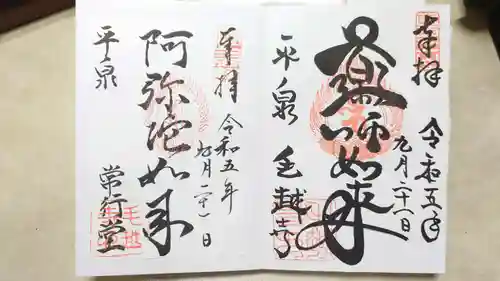 奉拝
令和五年
九月二十一日
薬師如来
平泉
毛越寺
奉拝
令和五年
九月二十一日
阿弥陀如来
平泉
常行堂
毛越